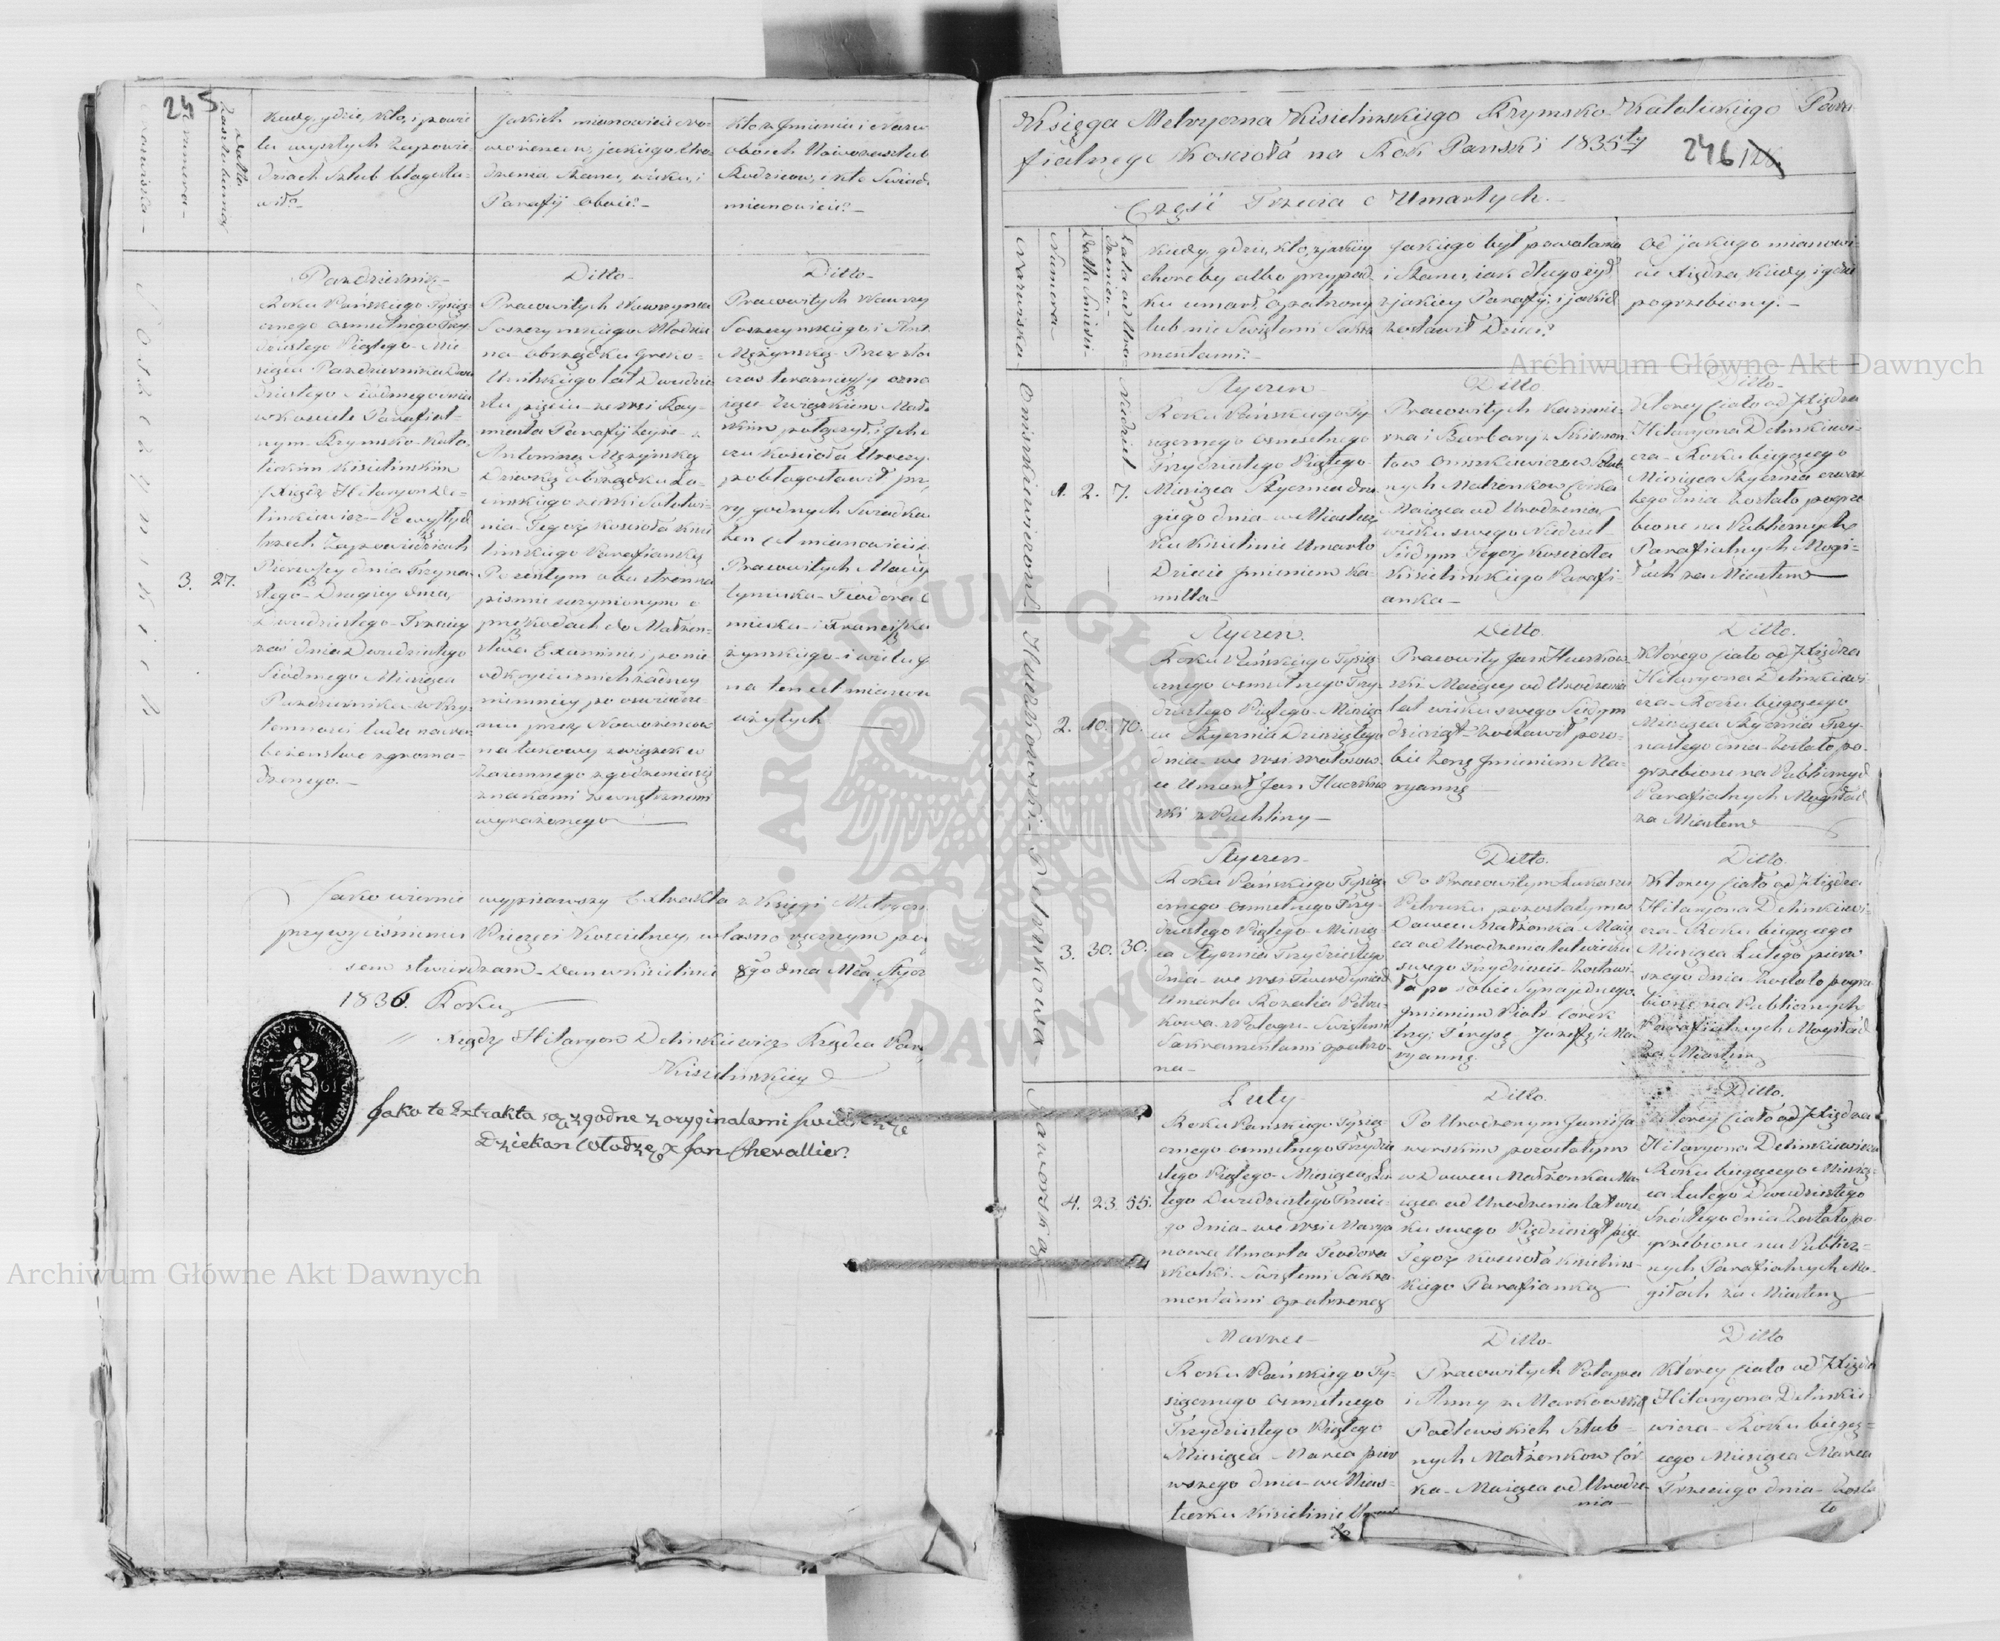 245
Numera
Datta zaślubienia
Kiedy, gdzie, kto, i po wie-
lu wyszłych Zapowie-
dziach Szlub błagosła-
wił?
Jakich mianowicie No-
wożencow, jakiego Uro-
dzenia, Stanu, wieku, i
Parafij oboie?
Kto z Imienia i Nazw
mianowicie?
Soszczynskich
3. 27.
Pazdziernik
Roku Pańskiego Tysiąc
cznego osmsetnego Trzy
dziestego Piątego Mie
siąca Pazdziernika Dwu
dziestego Siódmego dnia
w Kosciele Parafial-
nym Rzymsko-Kato-
lickim Kisielinskim
Xiądz Hilaryon De-
linkiewicz Po wyszłych
trzech Zapowiedziach
Pierwszej dnia Trzyna
stego Drugiey dnia
Dwudziestego Trzeciey
zaś dnia Dwudziestego
Siódmego Miesiąca
Pazdziernika w Przy
tomności ludu na na
bożenstwo zgroma-
dzonego.
Ditto
Pracowitych Wawrzynca
Soszczynskiego Młodzia
na obrządku Greko-
Unitskiego lat Dwudzie
stu pięciu ze wsi Ray-
miesta Parafij teyże z
Antoniną Mężynską
Dziewką obrządku Ła-
cinskiego ze wsi
nia Tegoż Kościoła Kisie
linskiego Parafianką
Po zaszłym obustronnie
pismie uczynionym o
przeszkodach do Małżen-
stwa Examinie i po nie
odkryciu z nich żadney
niemniey po oswiadcze-
niu przez Nowożencow
na takowy związek w
zaiemnego zgodzenia się
znakami zewnętrznemi
wyrażonego
Ditto
Pracowitych Wawrzy
Soszczynskiego i Ant
Mężynską
iące Związkiem Mał
skim połączył i Iche
czu Kościoła Uroczy
pobłogosławił prz
ry godnych Swiadko
Pracowitych Maciej
Teodora
i Franciszka
żynskiego i wielu
na ten akt
użytych
Jako wiernie wypisawszy Extrakta z Księgi Metryczn
przy wyciśnieniu Pieczęci Koscielney, własno ręcznym po
sem stwierdzam Dan w Kisielinie 8go dnia Mca Stycz
1836. Roku
Xiądz Hilaryon Delinkiewicz Rządca Par
Kisielinskiey
Jako te Extrakta są zgodne z oryginalami świadczę
Dziekan Włodz. X Jan Chevallier.
Księga Metryczna Kisielinskiego Rzymsko Katolickiego Para
fialnego Kosciołá na Rok Panski 1835ty
246
Częsć Trzecia o Umarłych.
Nazwiska
Numera
Datta Smierci
Lata od Uro-
dzenia
Kiedy, gdzie, kto, z jakiey
choroby albo przypad-
ku umarł, opatrzony
lub nie Swiętemi Sakra
mentami?
Jakiego był powołania
i Stanu, iak długo żył,
z jakiey Parafij; i jakie
zostawił Dzieci?
Od jakiego mianowi-
cie Xiędza, kiedy i gdzie
pogrzebiony?
Oniszkiewiczowna Huczkowski Petrukowa Jaworska
Niedziel
1. 2. 7.
Styczen
Roku Pańskiego Ty-
siącznego osmsetnego
Trzydziestego Piątego
Miesiąca Stycznia dru
giego dnia w Miastecz
ku Kisielinie Umarło
Dziecie Imieniem Ka-
milla
Ditto
Pracowitych Kazimie-
rza i Barbary z
Oniszkiewiczow Szlub
nych Małżonkow Corka
Maiąca od Urodzenia
wieku swego Niedziel
Siedym Tegoż Kosciola
Kisielinskiego Parafi-
anka
Ditto
Ktorey Ciało od Xiędza
Hilaryona Delinkiewi-
cza Roku bieżącego
Miesiąca Stycznia czwar
tego dnia Zostało pogrze
bione na Publicznych
Parafialnych Mogi-
łach za Miastem
2. 10. 70.
Styczen.
Roku Pańskiego Tysią
cznego osmsetnego Trzy
dziestego Piątego Miesią
ca Stycznia Dziesiątego
dnia we wsi
Umarł Jan Huczkow
ski z Puchliny
Ditto.
Pracowity Jan Huczkow-
ski Maiący od Urodzenia
lat wieku swego Siedym
dziesiąt Zostawił po so-
bie Żonę Imieniem Ma-
ryannę
Ditto.
Którego Ciało od Xiędza
Hilaryona Delinkiewi-
cza Roku bieżącego
Miesiąca Stycznia Trzy-
nastego dnia Zostało po-
grzebione na Publicznych
Parafialnych Mogiłach
za Miastem
3. 30. 30.
Styczen
Roku Pańskiego Tysią
cznego osmsetnego Trzy-
dziestego Piątego Miesią
ca Stycznia Trzydziestego
dnia we wsi Twerdyniach
Umarła Rozalia Petru-
kowa z Połogu Swiętemi
Sakramentami opatrzo-
na
Ditto.
Po Pracowitym Łukaszu
Petruku pozostałym w
Dowcu Małżonka Maią
ca od Urodzenia lat wieku
swego Trzydziescie Zostawi-
ła po sobie Syna jednego
Imieniem Piotr Corek
trzy, Tereszę Jozefę i Ma-
ryannę
Ditto.
Ktorey Ciało od Xiędza
Hilaryona Delinkiewi-
cza Roku bieżącego
Miesiąca Lutego pierw
szego dnia Zostało pogrze
bione na Publicznych
Parafialnych Mogiłach
za Miastem
4. 23. 55.
Luty
Roku Pańskiego Tysią-
cznego osmsetnego Trzydzie
stego Piątego Miesiąca Lu
tego Dwudziestego Trzecie-
go dnia we wsi Marya
nowce Umarła Teodora
Swiętemi Sakra-
mentami opatrzona
Ditto.
Po Urodzonym Ja
worskim pozostałym
w Dowcu Małżonka Ma-
iąca od Urodzenia lat wie
ku swego Pięcdziesiąt pięc
Tegoż Kościołá Kisielins-
kiego Parafianka
Ditto.
Ktorey Ciało od Xiędza
Hilaryona Delinkiewicza
Roku bieżącego Miesią-
ca Lutego Dwudziestego
Szóstego dnia Zostało po-
grzebione na Publicz-
nych Parafialnych Mo-
giłach za Miastem
Marzec
Roku Pańskiego Ty-
siącznego osmsetnego
Trzydziestego Piątego
Miesiąca Marca pier
wszego dnia w Mias-
teczku Kisielinie Umar
ła
Ditto.
Pracowitych Potapa
i Anny z Markowskich
Podlewskich Szlub-
nych Małżonkow Cór
ka Maiąca od Urodze
nia
Ditto
Ktorey Ciało od Xiędza
Hilaryona Delinkie-
wicza Roku bieżą-
cego Miesiąca Marca
Trzeciego dnia Zosta
ło
Archiwum Główne Akt Dawnych
Archiwum Główne Akt Dawnych
ARCHIWUM GŁÓWNE AKT DAWNYCH